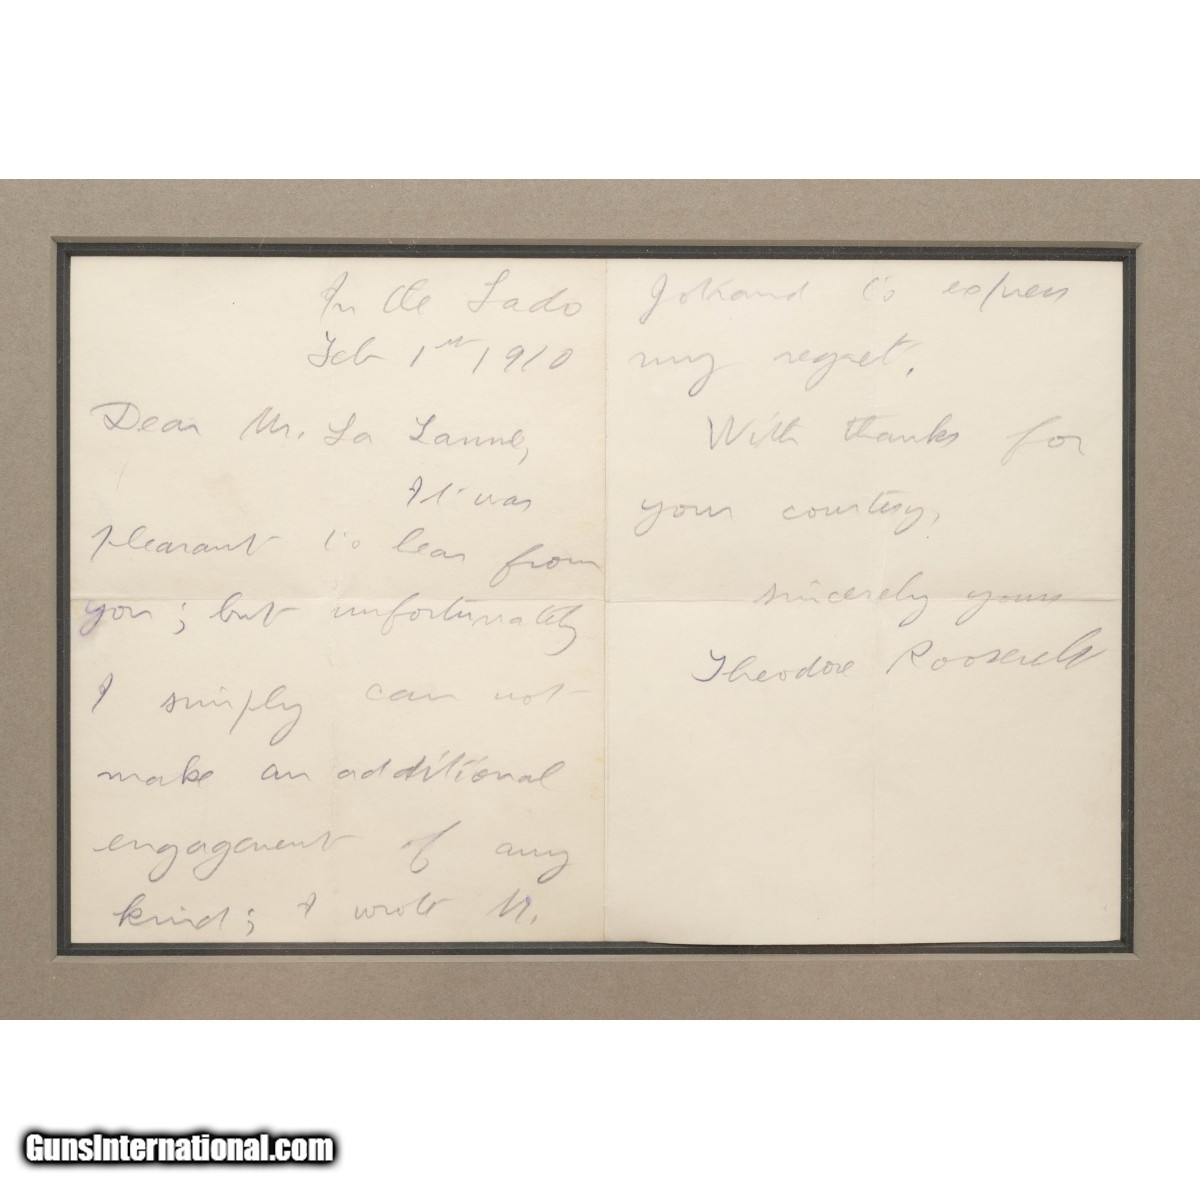 In the Lado
Feb 1st 1910
Dear Mr. La Lanne,
It was
pleasant to hear from
you; but unfortunately
I simply can not
make an additional
engagement of any
kind; I wrote M.
to express
my regret.
With thanks for
your courtesy,
sincerely yours
Theodore Roosevelt
GunsInternational.com